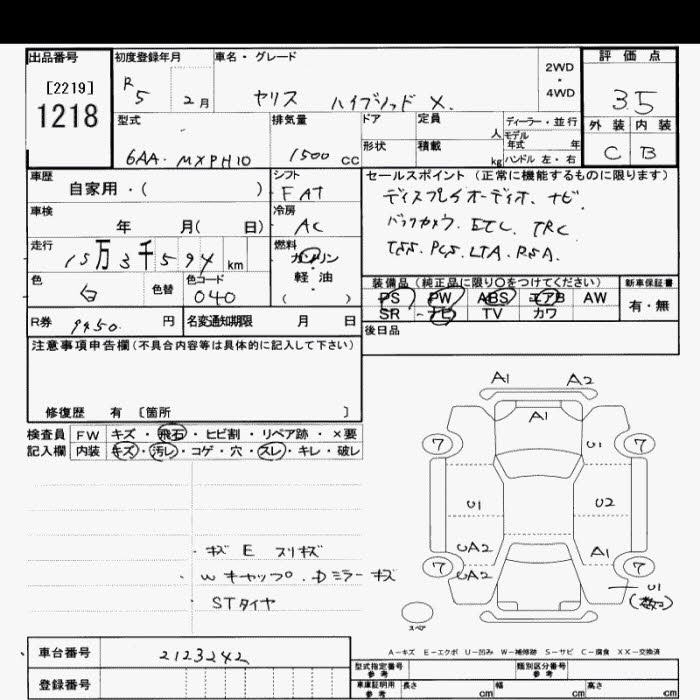 出品番号 初度登録年月 車名・グレード 評価点
[2219]
1218
R5 2月 ヤリス ハイブリッド X. 2WD・4WD 35
型式 排気量 ドア 定員 人 ディーラー・並行 外装 内装
モデル年式 年
6AA-MXPH10 1500 cc 形状 積載 kg ハンドル 左・右 C B
車歴 シフト セールスポイント(正常に機能するものに限ります)
自家用・( ) FAT ディスプレイオーディオ、ナビ、
車検 冷房 バックカメラ、ETC、TRC
年 月( 日) AC TSS、PCS、LTA、RSA、
走行 燃料
15万3千594 km ガソリン・軽油( )
色 色替 色コード 装備品(純正品に限り○をつけてください) 新車保証書
白 040 PS PW ABS エアB AW 有・無
SR ナビ TV カワ
R券 9950 円 名変通知期限 月 日 後日品
注意事項申告欄(不具合内容等は具体的に記入して下さい)
修復歴 有 〔箇所 〕
検査員 FW キズ・飛石・ヒビ割・リペア跡・×要
記入欄 内装 キズ・汚レ・コゲ・穴・スレ・キレ・破レ
A1 A2
A1
7 U1 7
U1 U2
UA2 A1
7 UA2 7 U1
(数コ)
・キズ E スリキズ
・Wキャップ、Dミラーキズ
・STタイヤ
スペア
A-キズ E-エクボ U-凹み W-補修跡 S-サビ C-腐食 XX-交換済
車台番号 2123242
登録番号
型式指定番号参考 類別区分番号参考
車庫証明用参考 長さ cm 幅 cm 高さ cm